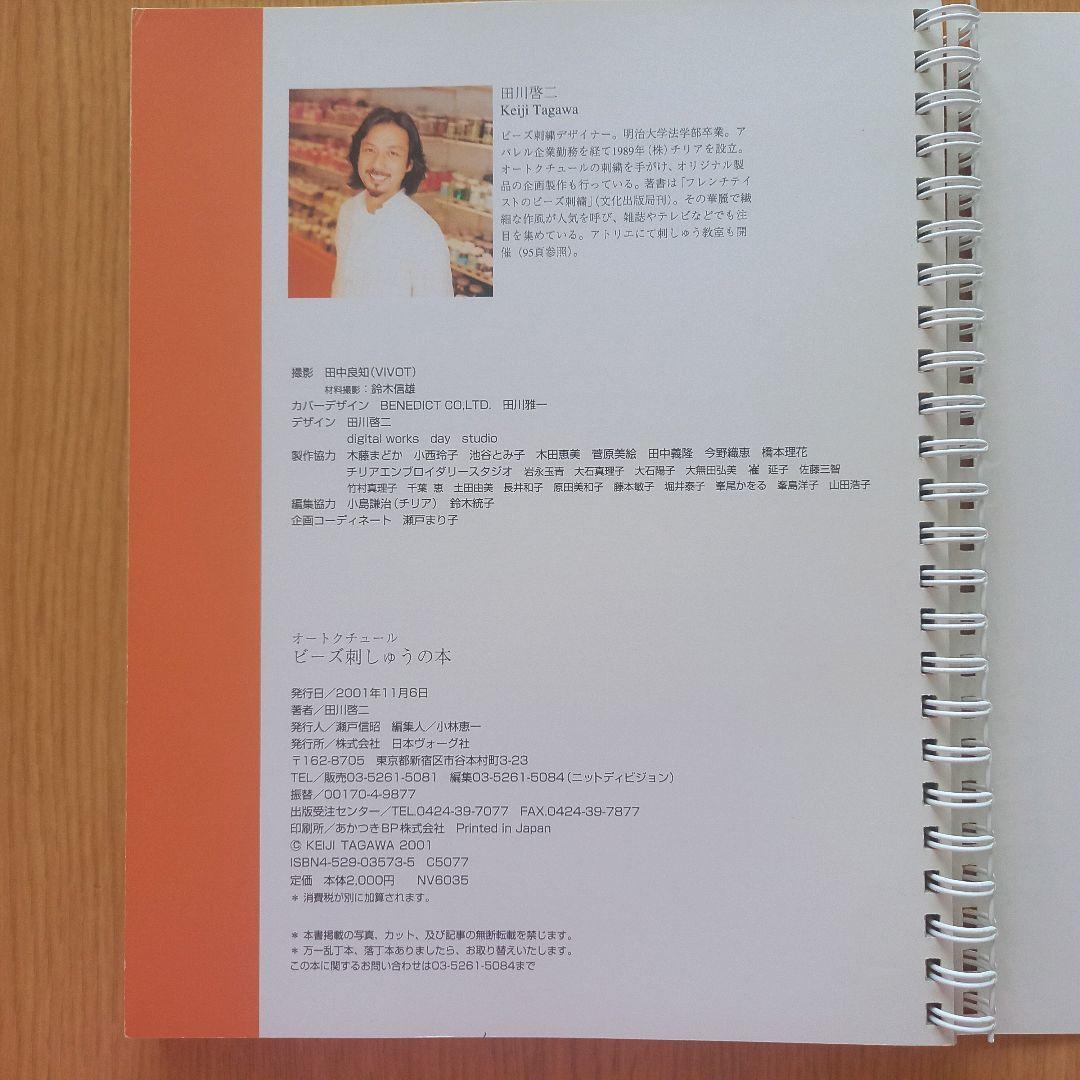 田川啓二
Keiji Tagawa
ビーズ刺繍デザイナー。明治大学法学部卒業。ア
パレル企業勤務を経て1989年(株)チリアを設立。
オートクチュールの刺繍を手がけ、オリジナル製
品の企画製作も行っている。著書は「フレンチテイ
ストのビーズ刺繍」(文化出版局刊)。その華麗で繊
細な作風が人気を呼び、雑誌やテレビなどでも注
目を集めている。アトリエにて刺しゅう教室も開
催(95頁参照)。
撮影 田中良知(VIVOT)
材料撮影：鈴木信雄
カバーデザイン BENEDICT CO,LTD. 田川雅一
デザイン 田川啓二
digital works day studio
製作協力 木藤まどか 小西玲子 池谷とみ子 木田恵美 菅原美絵 田中義隆 今野織恵 橋本理花
チリアエンブロイダリースタジオ 岩永玉青 大石真理子 大石陽子 大無田弘美 崔 延子 佐藤三智
竹村真理子 千葉 恵 土田由美 長井和子 原田美和子 藤本敏子 堀井泰子 峯尾かをる 峯島洋子 山田浩子
編集協力 小島謙治(チリア) 鈴木統子
企画コーディネート 瀬戸まり子
オートクチュール
ビーズ刺しゅうの本
発行日／2001年11月6日
著者／田川啓二
発行人／瀬戸信昭 編集人／小林恵一
発行所／株式会社 日本ヴォーグ社
〒162-8705 東京都新宿区市谷本村町3-23
TEL／販売03-5261-5081 編集03-5261-5084(ニットディビジョン)
振替／00170-4-9877
出版受注センター／TEL.0424-39-7077 FAX.0424-39-7877
印刷所／あかつきBP株式会社 Printed in Japan
© KEIJI TAGAWA 2001
ISBN4-529-03573-5 C5077
定価 本体2,000円 NV6035
＊ 消費税が別に加算されます。
＊ 本書掲載の写真、カット、及び記事の無断転載を禁じます。
＊ 万一乱丁本、落丁本ありましたら、お取り替えいたします。
この本に関するお問い合わせは03-5261-5084まで